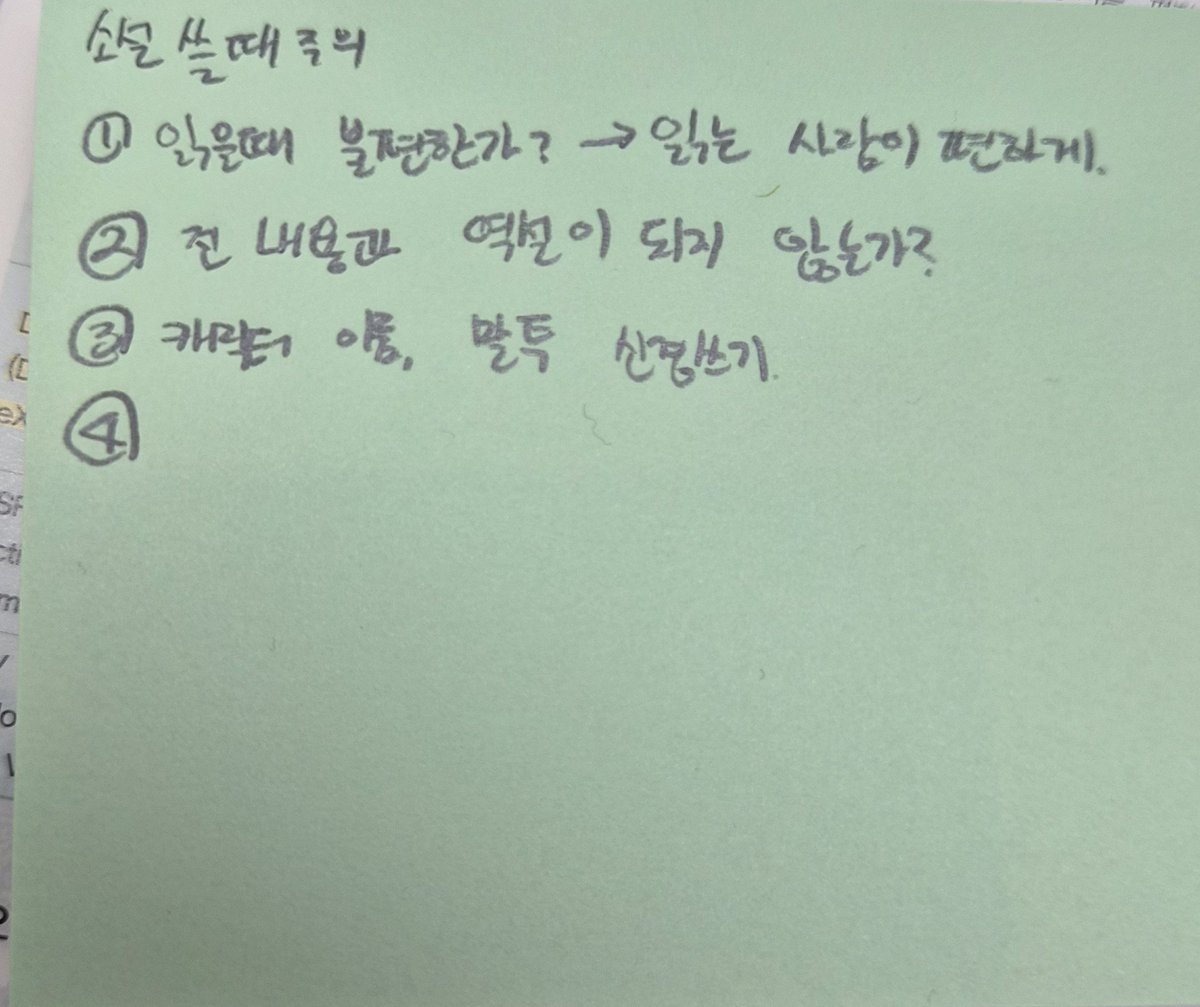 소설 쓸때 주의
① 읽을때 불편한가? → 읽는 사람이 편하게.
② 전 내용과 역설이 되지 않는가?
③ 캐릭터 이름, 말투 신경쓰기.
④